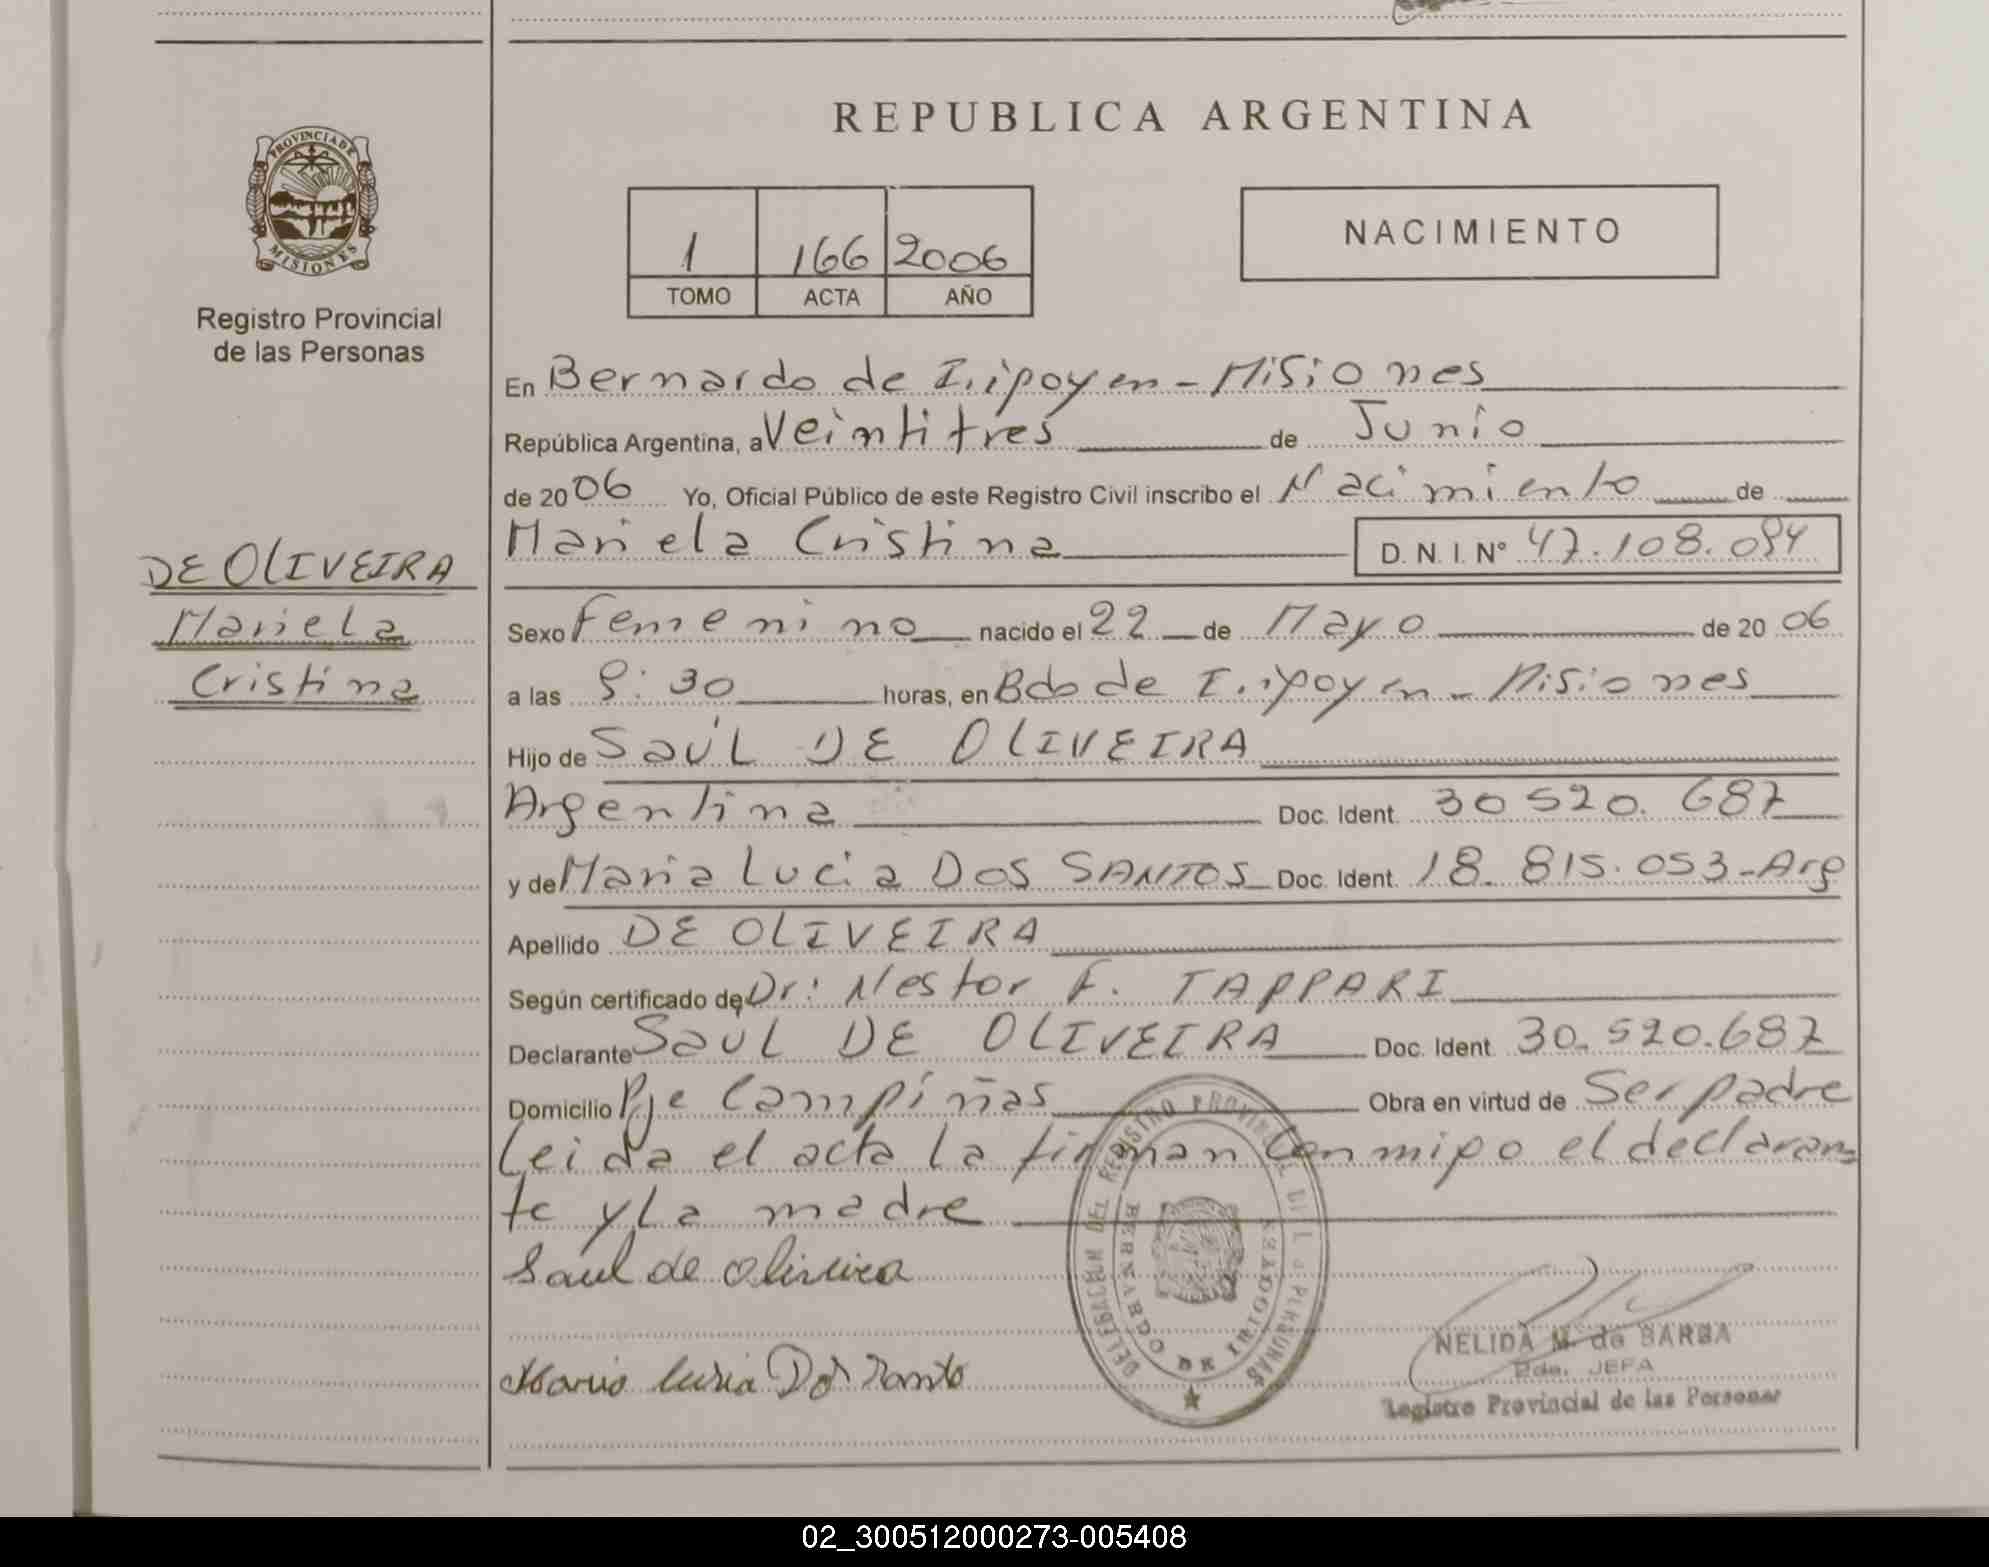 REPUBLICA ARGENTINA
PROVINCIA DE MISIONES
Registro Provincial
de las Personas
1 166 2006
TOMO ACTA AÑO
NACIMIENTO
En Bernardo de Iripoyen - Misiones
República Argentina, a Veintitres de Junio
de 2006 Yo, Oficial Público de este Registro Civil inscribo el Nacimiento de
Mariela Cristina D. N. I. Nº 47.108.094
DE OLIVEIRA
Mariela
Cristina
Sexo Femenino nacido el 22 de Mayo de 2006
a las 8:30 horas, en Bdo de Iripoyen - Misiones
Hijo de Saúl DE OLIVEIRA
Argentina Doc. Ident. 30 520. 687
y de Maria Lucia DOS SANTOS Doc. Ident. 18. 815.053-Arg
Apellido DE OLIVEIRA
Según certificado de Dr: Nestor F. TAPPARI
Declarante Saul DE OLIVEIRA Doc. Ident. 30.520.687
Domicilio Pje Campiñas Obra en virtud de Ser padre
Leida el acta la firman conmipo el declaran=
te y La madre
Saul de oliveira
Maria Lusia Dos Santo
DELEGACION DEL REGISTRO PROVINCIAL DE LAS PERSONAS
BERNARDO DE IRIGOYEN
NELIDA M. de BARBA
Pda. JEFA
Registro Provincial de las Personas
02_300512000273-005408